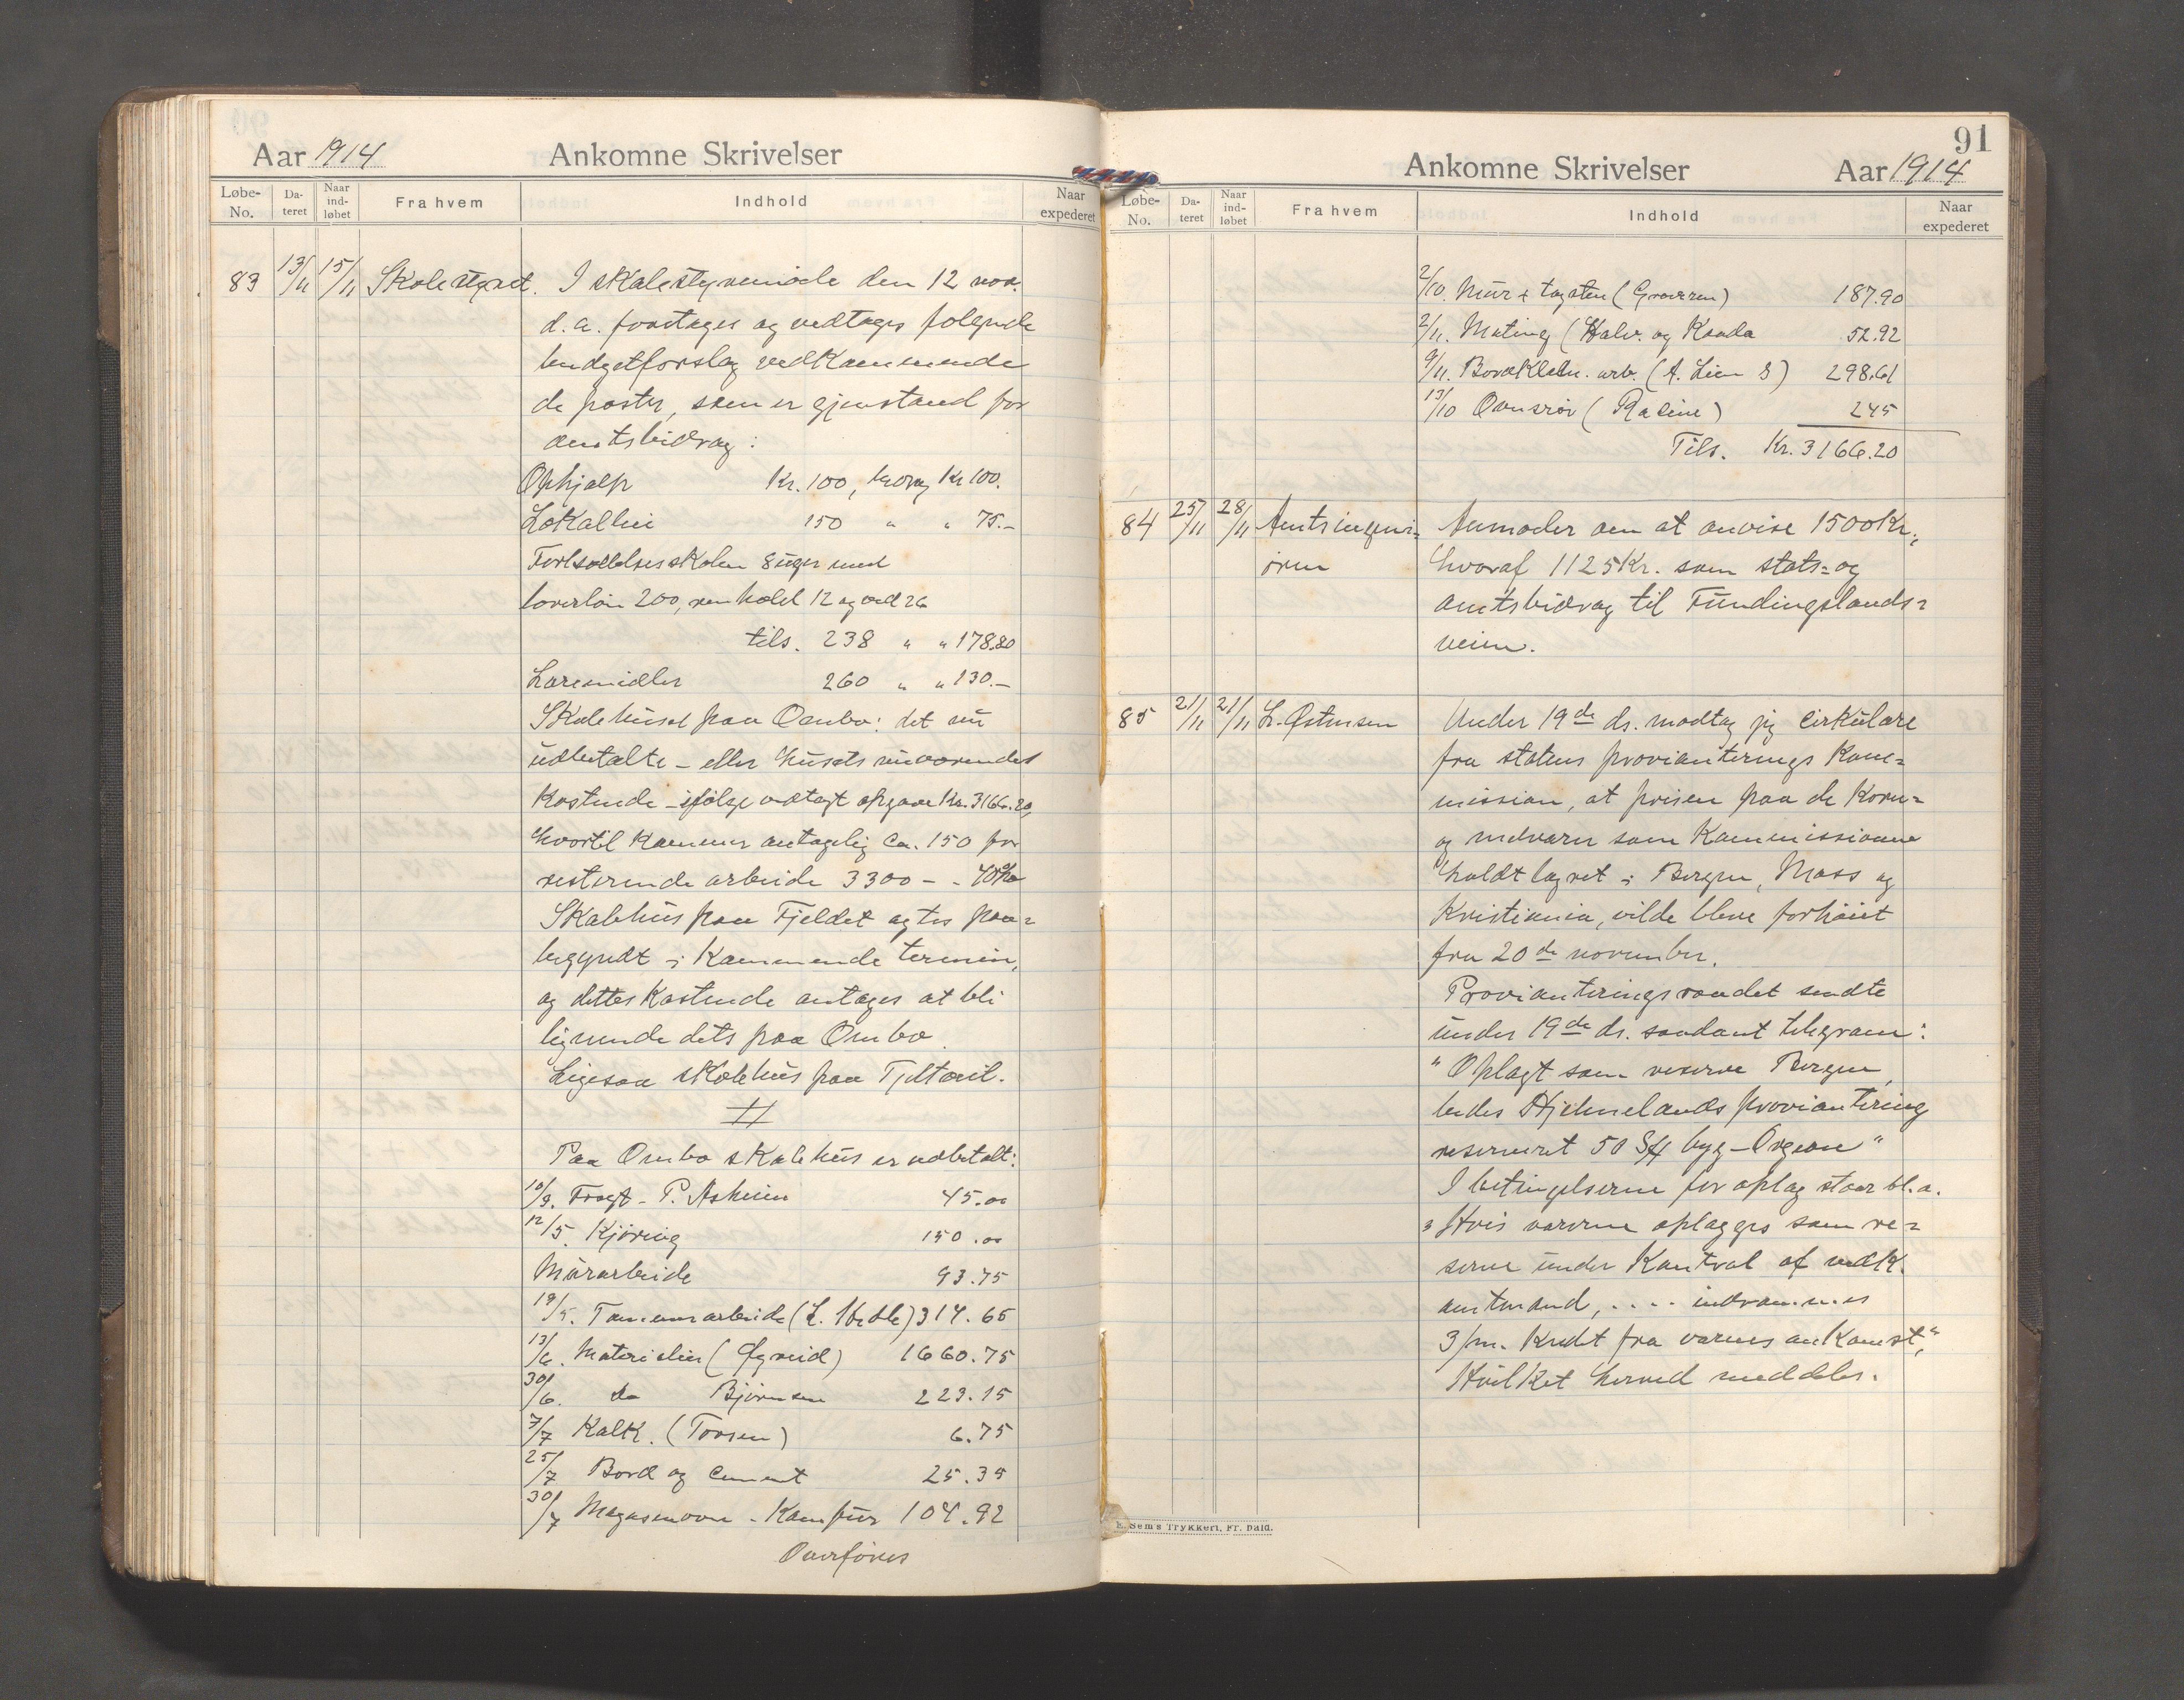 Aar 1914 Ankomne Skrivelser
Løbe-No. Da-teret Naar ind-løbet Fra hvem Indhold Naar expederet
83 13/11 15/11 Skolestyret. I skolestyremøde den 12 nov.
d.a. foretages og vedtages følgende
budgetforslag vedkommende
de poster, som er gjenstand for
amtsbidrag:
Ophjælp Kr. 100, bidrag Kr 100.
Lokalleie 150 " " 75.–
Fortsættelsesskolen 8 uger med
lærerløn 200, renhold 12 og ved 26
tils. 238 " " 178.80
Læremidler 260 " " 130.–
Skolehuset paa Ombo: det nu
udbetalte – eller husets nuværende
kostende – ifølge vedtagt opgave Kr. 3166.20,
hvortil kommer antagelig ca. 150 for
resterende arbeide 3300 –
Skolehus paa Fjeldet agtes paa=
begyndt i kommende termin,
og dettes kostende antages at bli
lignende dets paa Ombo.
Ligesaa skolehus paa
Paa Ombo skolehus er udbetalt:
10/3. Fragt – P. Asheim 45.00
12/5. Kjøring 150.00
Murarbeide 93.75
19/5. Tømmerarbeide (L. ) 314.65
13/6. Materialier (Øgreid) 1660.75
30/6. do Bjørnsen 223.15
7/7 Kalk. (Torsen) 6.75
25/7 Bord og cement 25.35
30/7 Magasinovn – Kamfur 104.92
Overføres
91
Ankomne Skrivelser Aar 1914
Løbe-No. Da-teret Naar ind-løbet Fra hvem Indhold Naar expederet
2/10. Mur + tagsten (Graaren) 187.90
2/11. Maling (Halv. og Kaada 52.92
9/11. Bordklædn. arb. (A. Lien S) 298.61
13/10 Ovnsrør (Racine) 2.45
Tils. Kr. 3166.20
84 25/11 28/11 Amtsingeni= Anmoder om at anvise 1500 Kr.,
øren hvoraf 1125 Kr. som stats= og
amtsbidrag til Fundingslands=
veien.
85 21/11 21/11 L. Østensen Under 19de ds. modtog jeg cirkulære
fra statens provianterings kom=
mission, at prisen paa de korn=
og melvarer som kommissionen
holdt lagret i Bergen, Moss og
Kristiania, vilde bleve forhøiet
fra 20de november.
Provianteringsraadet sendte
under 19de ds. saadant telegram:
"Oplagt som reserve Bergen,
bedes Hjelmelands proviantering
reserveret 50 byg –
I betingelserne for oplag staar bl.a.
"Hvis varerne oplægges som re=
serve under kontrol af vedk.
amtmand, .... indrømmes
3/m. kredit fra varenes ankomst,"
Hvilket herved meddeles.
E. Sems Trykkeri, Fr.hald.